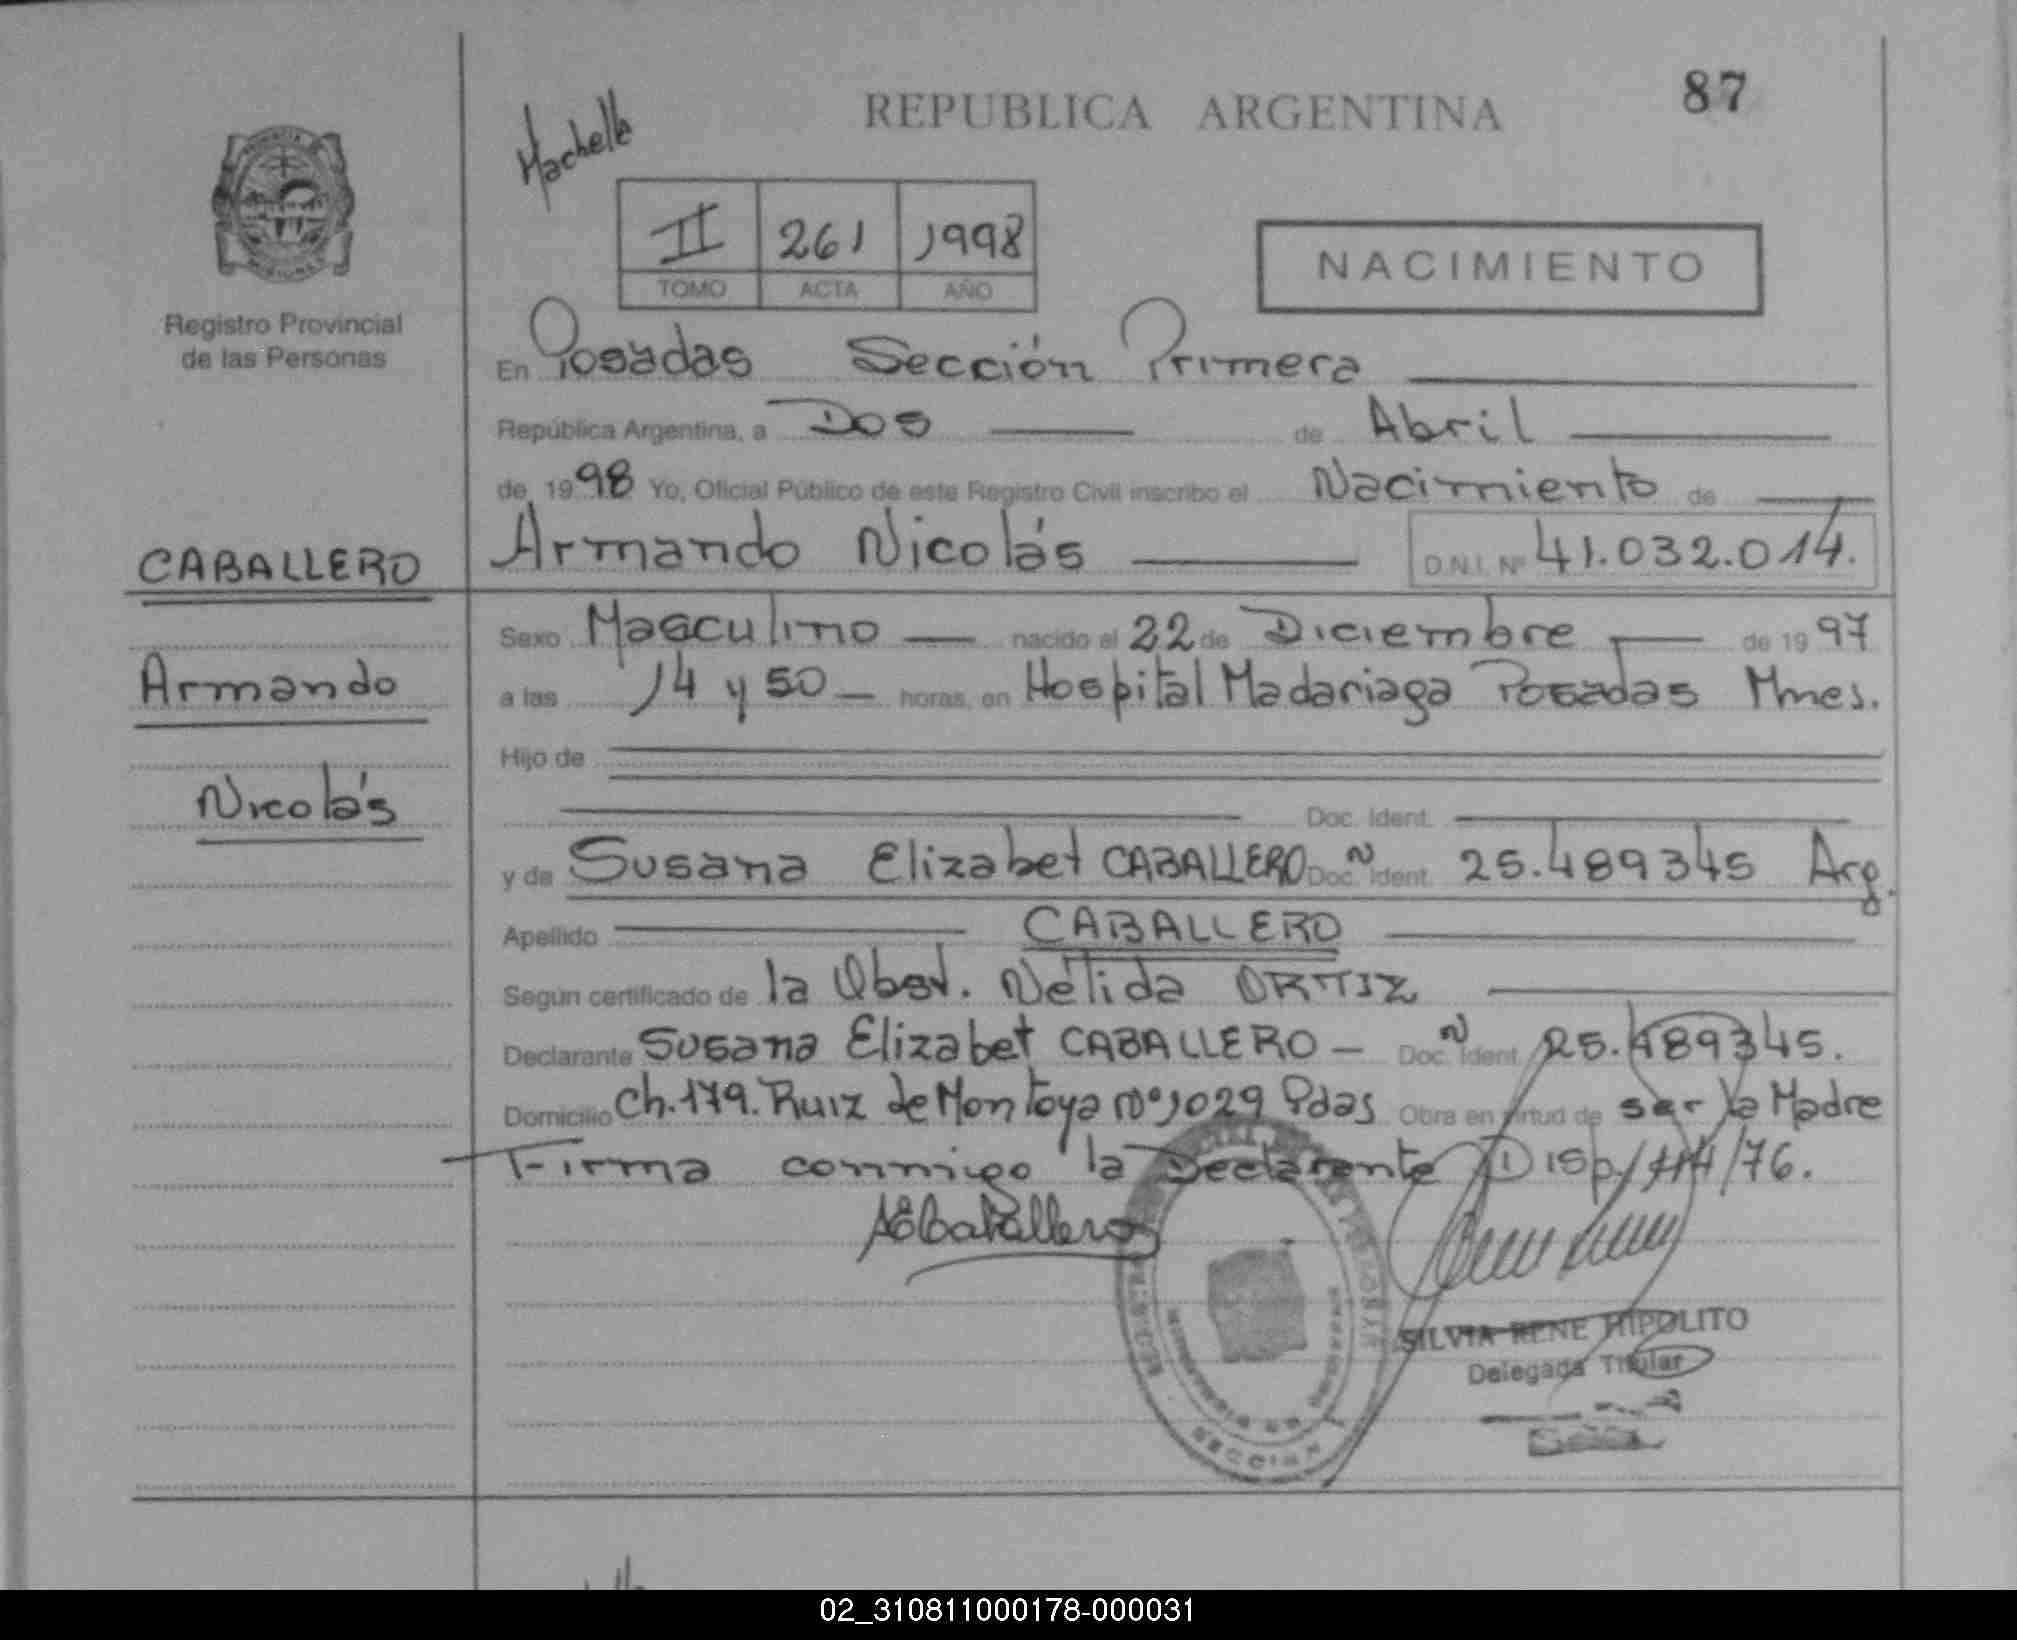 87
REPUBLICA ARGENTINA
Machelle
II 261 1998
TOMO ACTA AÑO
NACIMIENTO
Registro Provincial
de las Personas
En Posadas Sección Primera
República Argentina, a Dos de Abril
de 1998 Yo, Oficial Público de este Registro Civil inscribo el Nacimiento de
CABALLERO
Armando
Nicolás
Armando Nicolás D.N.I. Nº 41.032.014.
Sexo Masculino nacido el 22 de Diciembre de 1997
a las 14 y 50 horas, en Hospital Madariaga Posadas Mnes.
Hijo de
Doc. Ident.
y de Susana Elizabet CABALLERO Doc. Ident. 25.489345 Arg.
Apellido CABALLERO
Según certificado de la Obst. Nélida ORTIZ
Declarante Susana Elizabet CABALLERO Doc. Ident. 25.489345.
Domicilio Ch. 179. Ruiz de Montoya nº 1029 Pdas Obra en virtud de ser la Madre
Firma conmigo la Declarante Disp/ /76.
SECaballero
SILVIA RENE HIPOLITO
Delegada Titular
SECCION
02_310811000178-000031